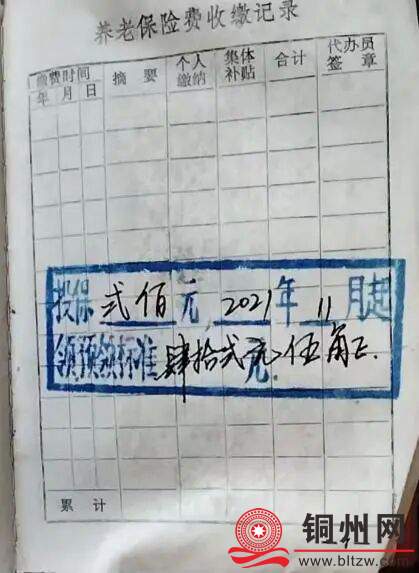 养老保险费收缴记录
缴费时间 摘要 个人缴纳 集体补贴 合计 代办员签章
年 月 日
投保 贰佰 元 2021 年 11 月起
领预领标准 肆拾贰元伍角正.
累计
铜州网
www.bltzw.com